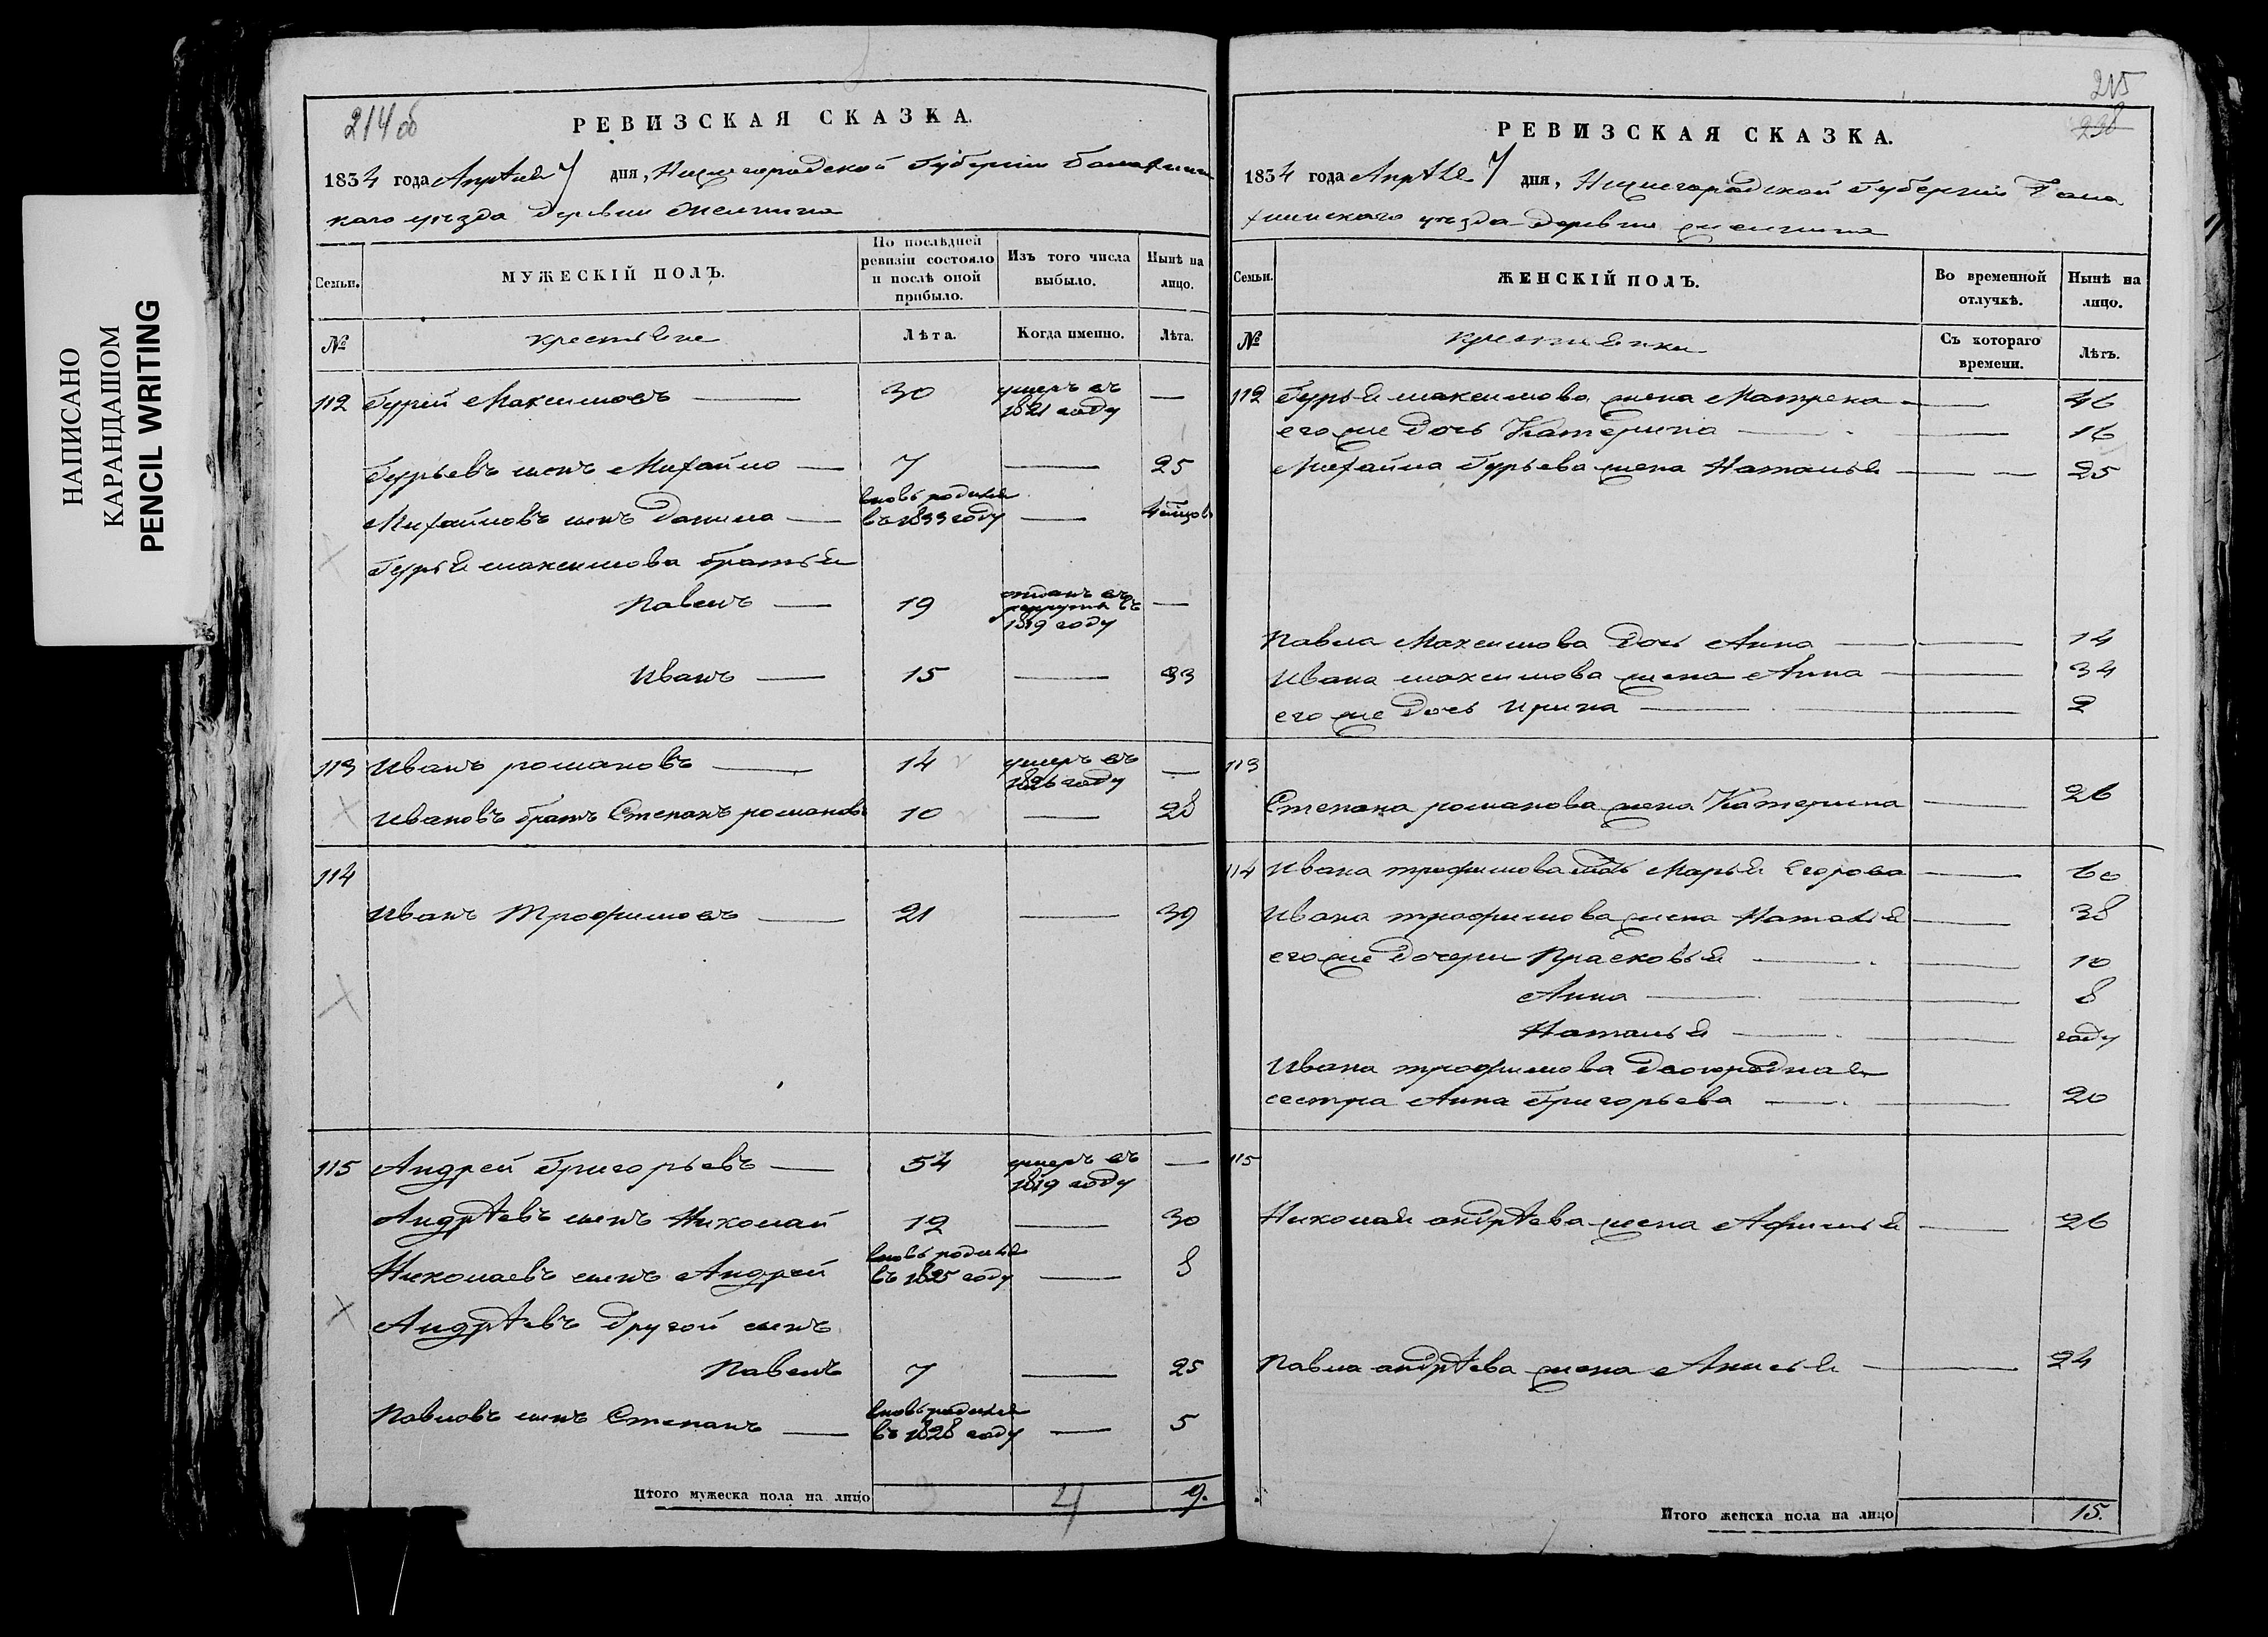 НАПИСАНО
КАРАНДАШОМ
PENCIL WRITING
214 об
РЕВИЗСКАЯ СКАЗКА.
1834 года Апрѣля 7 дня, Нижегородской Губернiи Балахнин
скаго уѣзда деревни
Семьи.
МУЖЕСКІЙ ПОЛЪ.
По послѣдней ревизіи состояло и послѣ оной прибыло.
Изъ того числа выбыло.
Нынѣ на лицо.
№
крестьяне
Лѣта.
Когда именно.
Лѣта.
112 Гурей Максимовъ — 30 умеръ въ 1821 году —
Гурьевъ сынъ Михайло — 7 — 25
Михайловъ сынъ Данила — вновь родился въ 1833 году — 4 мѣсяцовъ
Гурья максимова братья
Павелъ — 19 отданъ въ рекруты въ 1819 году —
Иванъ — 15 — 33
113 Иванъ романовъ — 14 умеръ въ 1826 году —
Ивановъ братъ Степанъ романовъ 10 — 28
114
Иванъ Трофимовъ — 21 — 39
115 Андрей Григорьевъ — 54 умеръ въ 1819 году —
Андрѣевъ сынъ Николай 12 — 30
Николаевъ сынъ Андрей вновь родился въ 1825 году — 8
Андрѣевъ другой сынъ
Павелъ 7 — 25
Павловъ сынъ Степанъ — вновь родился въ 1828 году — 5
Итого мужеска пола на лицо 4 9.
215
238
РЕВИЗСКАЯ СКАЗКА.
1834 года Апрѣля 7 дня, Нижегородской Губернiи Бала
хнинскаго уѣзда деревни
Семьи.
ЖЕНСКІЙ ПОЛЪ.
Во временной отлучкѣ.
Нынѣ на лицо.
№
крестьянки
Съ котораго времени.
Лѣтъ.
112 Гурья максимова жена Матрена — 46
его же дочь Катерина — 16
Михайла Гурьева жена Наталья — 25
Павла Максимова дочь Анна — 14
Ивана максимова жена Анна — 34
его же дочь Ирина — 2
113
Степана романова жена Катерина — 26
114 Ивана трофимова мать Марья Егорова — 60
Ивана трофимова жена Наталья — 38
его же дочери Прасковья — 10
Анна — 8
Наталья — году
Ивана трофимова двоюродная
сестра Анна Григорьева — 20
115
Николая андрѣева жена Афимья — 26
Павла андрѣева жена Анисья — 24
Итого женска пола на лицо 15.